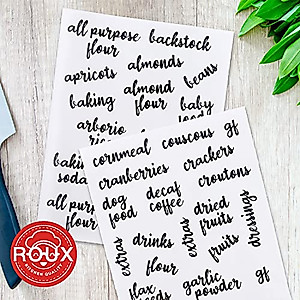 all purpose flour
backstock
apricots
almonds
beans
baking
almond flour
baby
arborio
baking soda
all purpose flour
cornmeal
couscous
gf
cranberries
crackers
dog food
decaf coffee
croutons
extras
drinks
extras
dried fruits
dressings
flour
fruits
flax
garlic powder
gf
ROUX
KITCHEN QUALITY